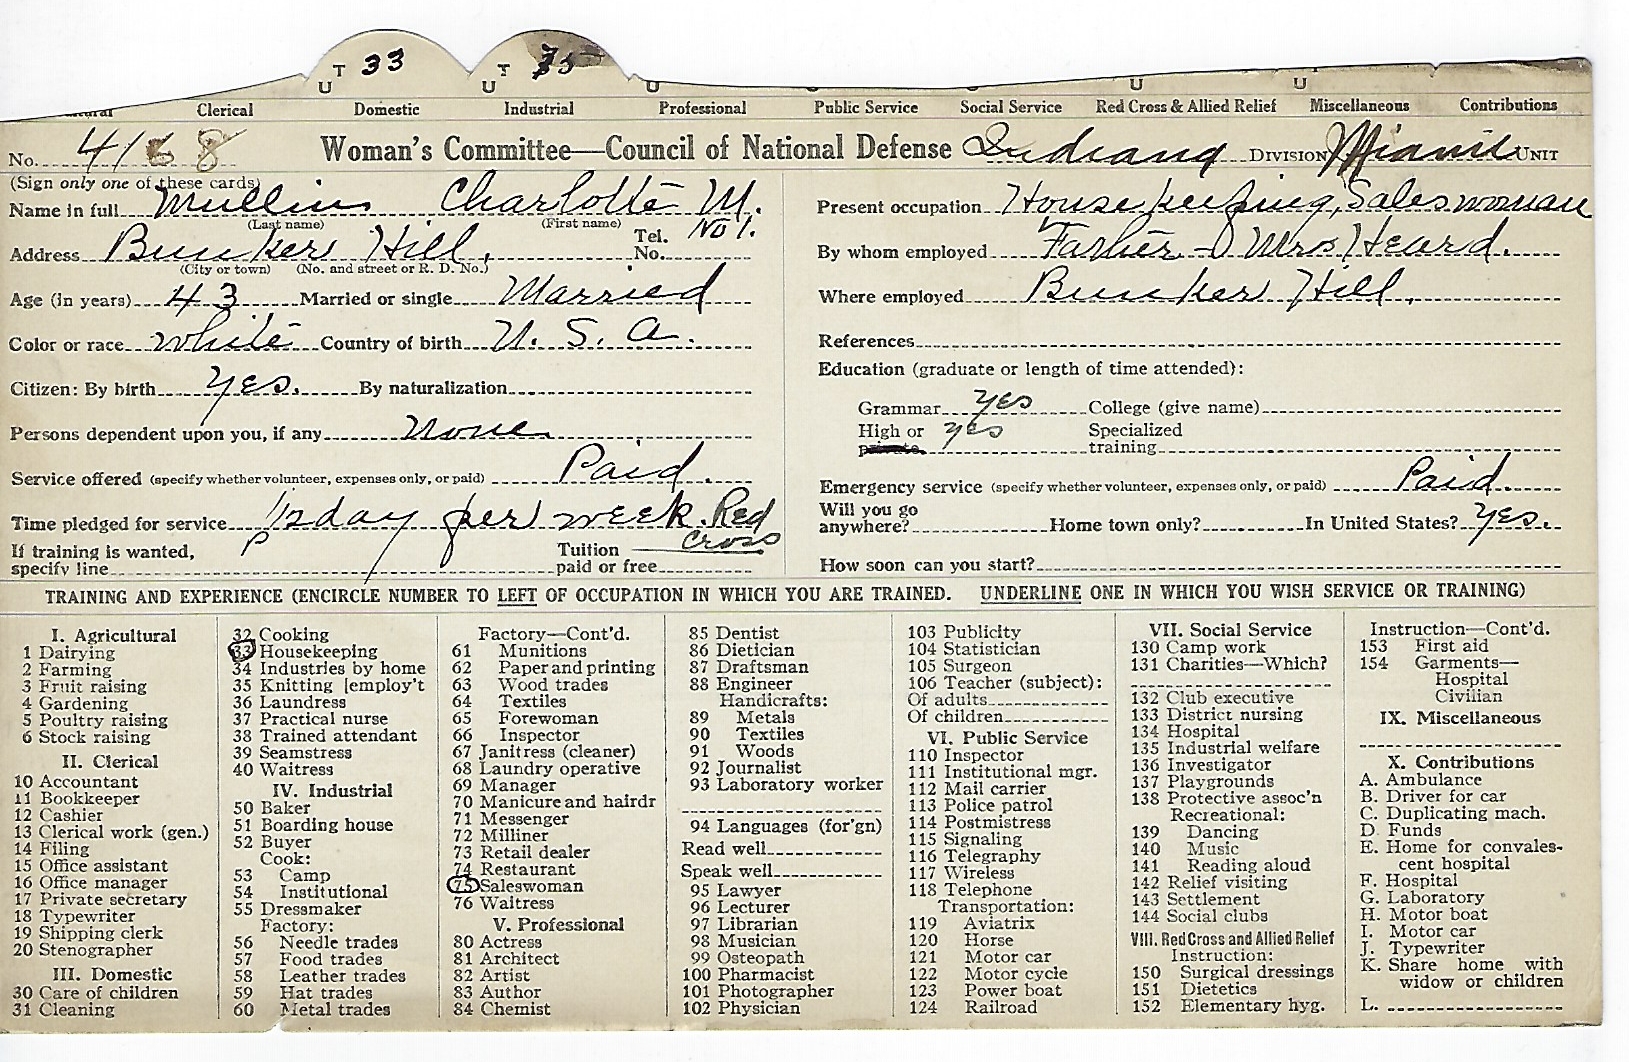 T 33 T 75
U U U U U
Clerical Domestic Industrial Professional Public Service Social Service Red Cross & Allied Relief Miscellaneous Contributions
No. 41 8 Woman's Committee—Council of National Defense Indiana DIVISION Miami UNIT
(Sign only one of these cards)
Name in full Mullin Charlotte M.
(Last name) (First name)
Address Bunker Hill, Tel. No. No 1.
(City or town) (No. and street or R. D. No.)
Age (in years) 43 Married or single Married
Color or race white Country of birth U. S. A.
Citizen: By birth yes. By naturalization
Persons dependent upon you, if any None
Service offered (specify whether volunteer, expenses only, or paid) Paid.
Time pledged for service 1/2 day per week. Red Cross
If training is wanted, specify line Tuition paid or free
Present occupation House keeping, Saleswoman
By whom employed Father - Mrs Heard.
Where employed Bunker Hill,
References
Education (graduate or length of time attended):
Grammar yes College (give name)
High or private yes Specialized training
Emergency service (specify whether volunteer, expenses only, or paid) Paid.
Will you go anywhere? Home town only? In United States? yes.
How soon can you start?
TRAINING AND EXPERIENCE (ENCIRCLE NUMBER TO LEFT OF OCCUPATION IN WHICH YOU ARE TRAINED. UNDERLINE ONE IN WHICH YOU WISH SERVICE OR TRAINING)
I. Agricultural
1 Dairying
2 Farming
3 Fruit raising
4 Gardening
5 Poultry raising
6 Stock raising
II. Clerical
10 Accountant
11 Bookkeeper
12 Cashier
13 Clerical work (gen.)
14 Filing
15 Office assistant
16 Office manager
17 Private secretary
18 Typewriter
19 Shipping clerk
20 Stenographer
III. Domestic
30 Care of children
31 Cleaning
32 Cooking
33 Housekeeping
34 Industries by home
35 Knitting [employ't
36 Laundress
37 Practical nurse
38 Trained attendant
39 Seamstress
40 Waitress
IV. Industrial
50 Baker
51 Boarding house
52 Buyer
Cook:
53 Camp
54 Institutional
55 Dressmaker
Factory:
56 Needle trades
57 Food trades
58 Leather trades
59 Hat trades
60 Metal trades
Factory—Cont'd.
61 Munitions
62 Paper and printing
63 Wood trades
64 Textiles
65 Forewoman
66 Inspector
67 Janitress (cleaner)
68 Laundry operative
69 Manager
70 Manicure and hairdr
71 Messenger
72 Milliner
73 Retail dealer
74 Restaurant
75 Saleswoman
76 Waitress
V. Professional
80 Actress
81 Architect
82 Artist
83 Author
84 Chemist
85 Dentist
86 Dietician
87 Draftsman
88 Engineer
Handicrafts:
89 Metals
90 Textiles
91 Woods
92 Journalist
93 Laboratory worker
94 Languages (for'gn)
Read well
Speak well
95 Lawyer
96 Lecturer
97 Librarian
98 Musician
99 Osteopath
100 Pharmacist
101 Photographer
102 Physician
103 Publicity
104 Statistician
105 Surgeon
106 Teacher (subject):
Of adults
Of children
VI. Public Service
110 Inspector
111 Institutional mgr.
112 Mail carrier
113 Police patrol
114 Postmistress
115 Signaling
116 Telegraphy
117 Wireless
118 Telephone
Transportation:
119 Aviatrix
120 Horse
121 Motor car
122 Motor cycle
123 Power boat
124 Railroad
VII. Social Service
130 Camp work
131 Charities—Which?
132 Club executive
133 District nursing
134 Hospital
135 Industrial welfare
136 Investigator
137 Playgrounds
138 Protective assoc'n
Recreational:
139 Dancing
140 Music
141 Reading aloud
142 Relief visiting
143 Settlement
144 Social clubs
VIII. Red Cross and Allied Relief
Instruction:
150 Surgical dressings
151 Dietetics
152 Elementary hyg.
Instruction—Cont'd.
153 First aid
154 Garments—
Hospital
Civilian
IX. Miscellaneous
X. Contributions
A. Ambulance
B. Driver for car
C. Duplicating mach.
D. Funds
E. Home for convales-
cent hospital
F. Hospital
G. Laboratory
H. Motor boat
I. Motor car
J. Typewriter
K. Share home with
widow or children
L.